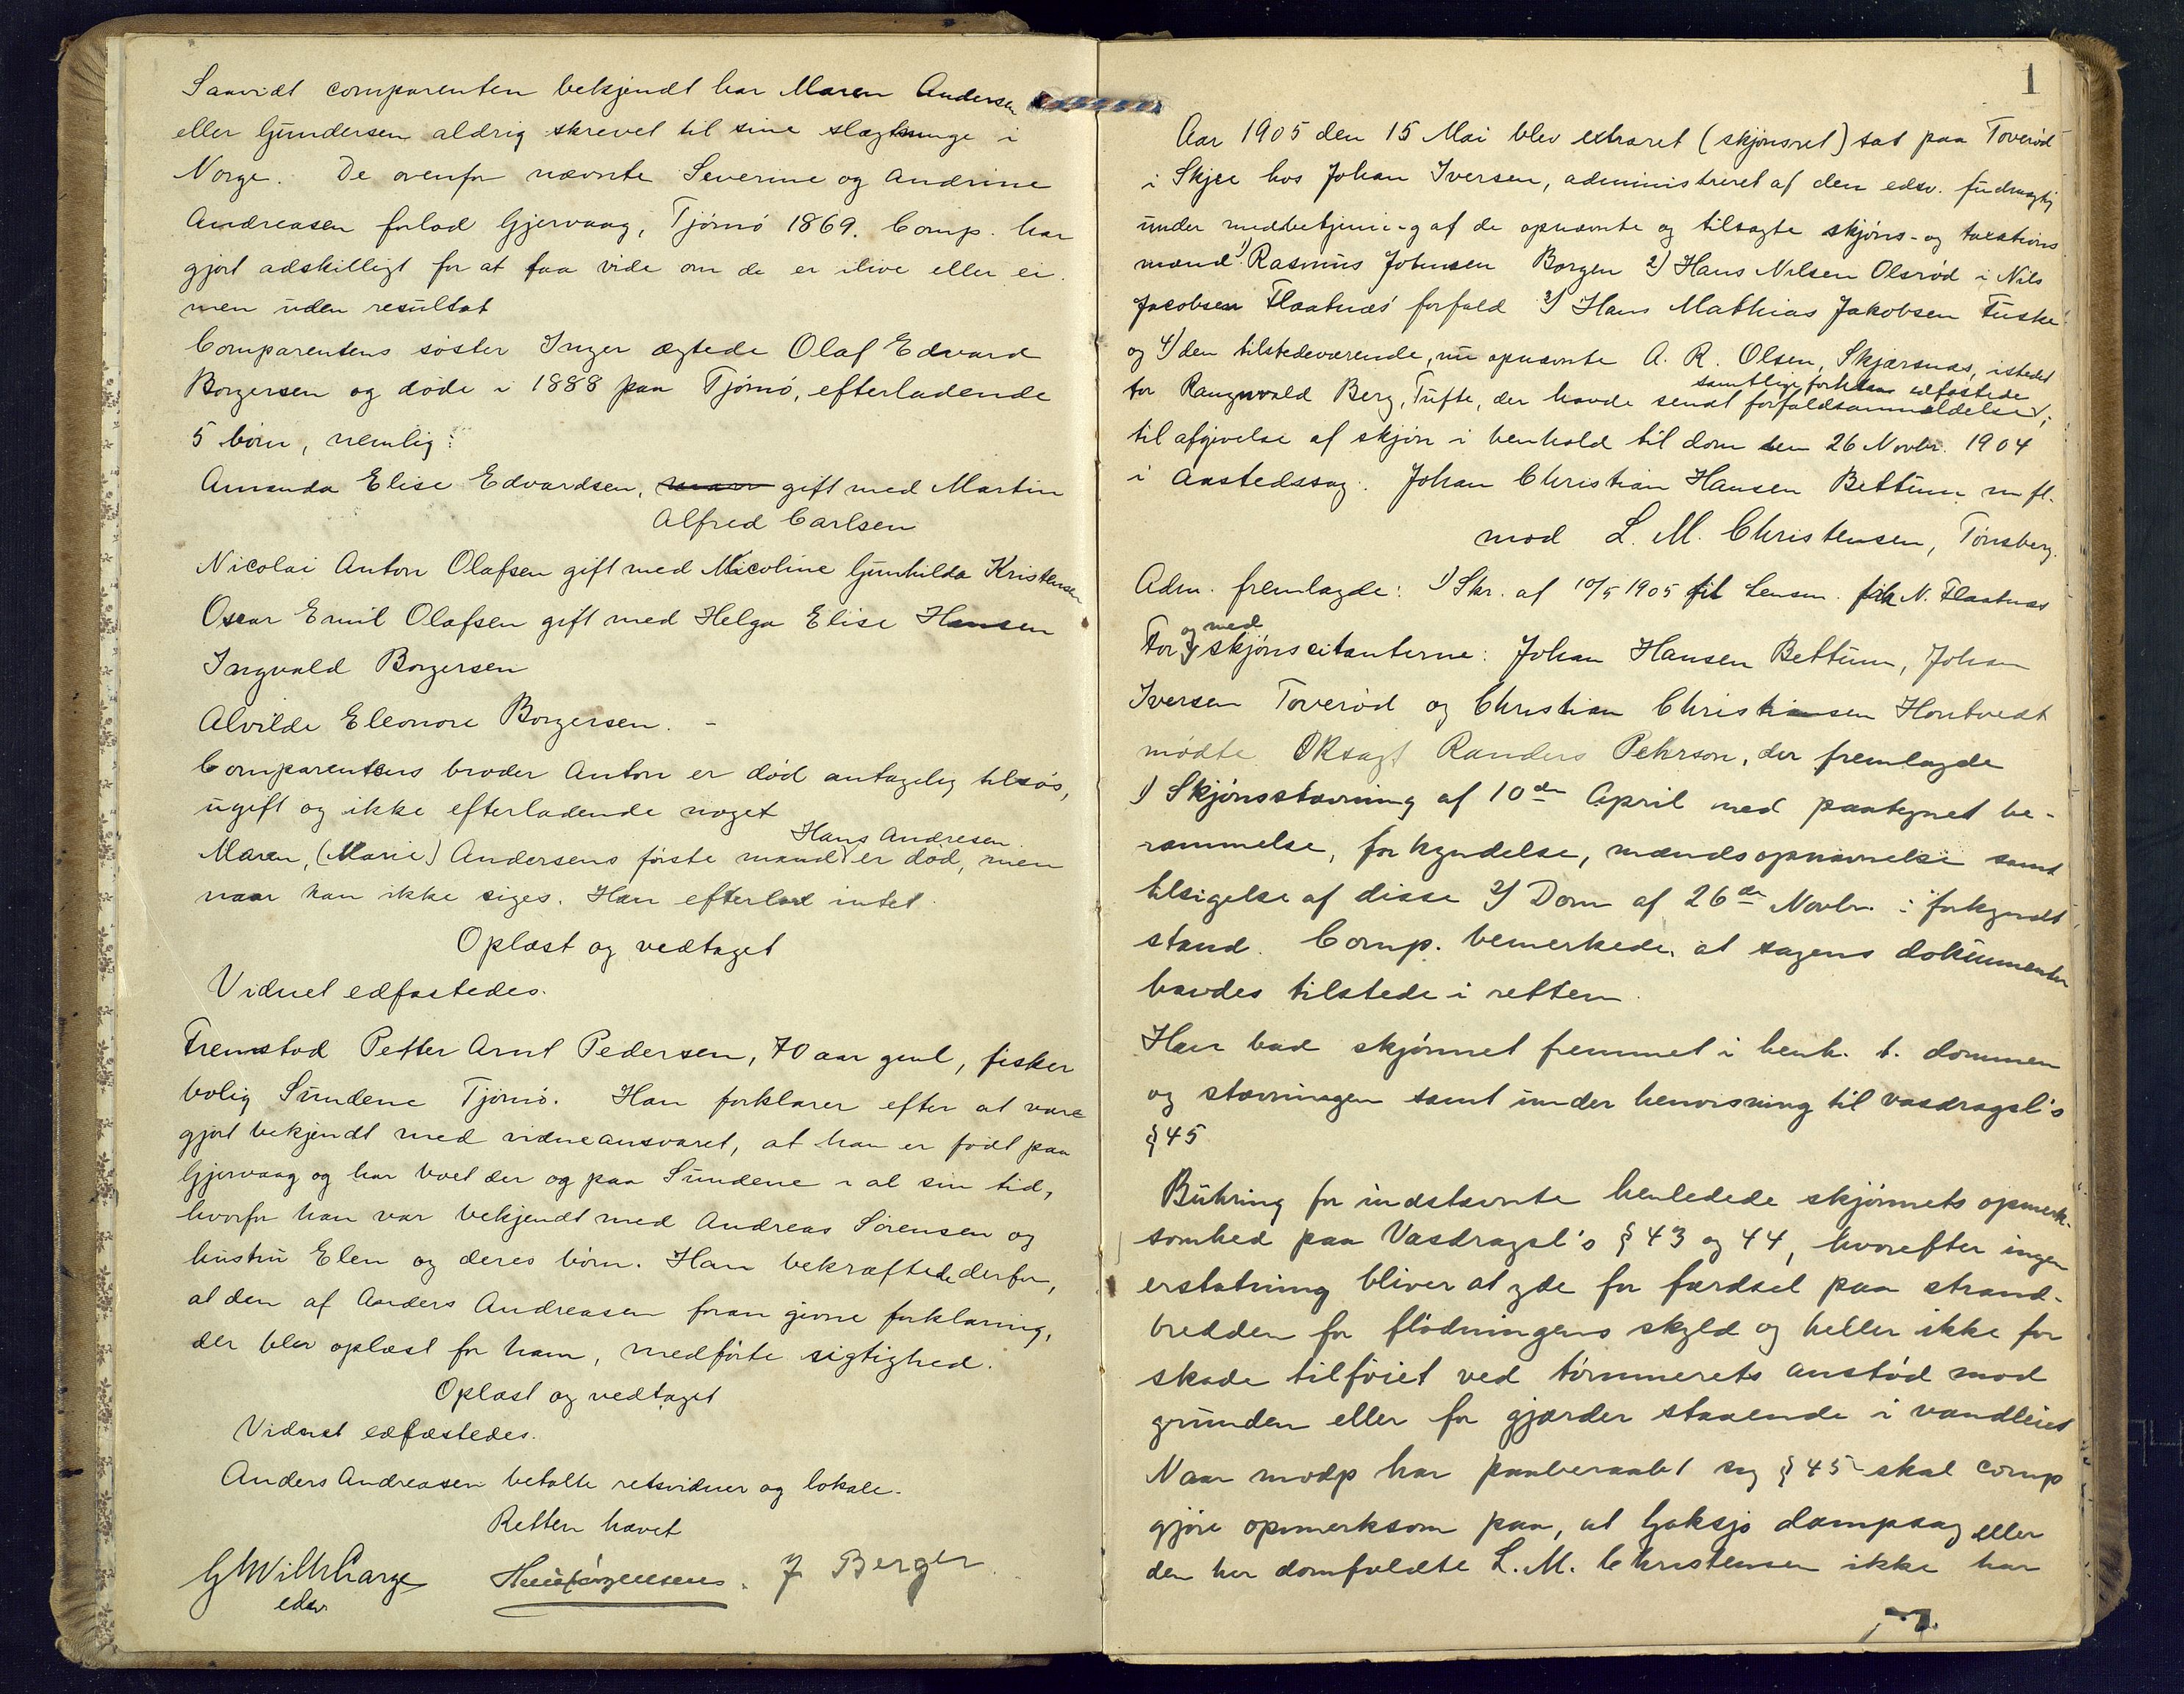 Saavidt comparenten bekjendt har Maren Andersen
eller Gundersen aldrig skrevet til sine slægtninge i
Norge. De ovenfor nævnte Severine og Andrine
Andreasen forlod Gjervaag, Tjömö 1869. Comp. har
gjort adskilligt for at faa vide om de er ilive eller ei
men uden resultat
Comparentens söster Inger ægtede Olaf Edvard
Borgersen og döde i 1888 paa Tjömö, efterladende
5 börn, nemlig:
Amanda Elise Edvardsen, gift med Martin
Alfred Carlsen
Nicolai Anton Olafsen gift med Nicoline Gunhilda Kristensen
Oscar Emil Olafsen gift med Helga Elise Hansen
Ingvald Borgersen
Alvilde Eleonore Borgersen. -
Comparentens broder Anton er död antagelig tilsös,
ugift og ikke efterladende noget
Hans Andresen
Maren, (Marie) Andersens förste mand er död, men
naar kan ikke siges. Han efterlod intet.
Oplæst og vedtaget
Vidnet edfæstedes.
Fremstod Petter Arnt Pedersen, 70 aar gml, fisker
bolig Sundene Tjömö. Han forklarer efter at være
gjort bekjendt med vidneansvaret, at han er födt paa
Gjervaag og har boet der og paa Sundene i al sin tid,
hvorfor han var bekjendt med Andreas Sörensen og
hustru Elen og deres börn. Han bekræftede derfor,
at den af Anders Andreasen foran givne forklaring,
der blev oplæst for ham, medförte rigtighed.
Oplæst og vedtaget
Vidnet edfæstedes.
Anders Andreasen betalte retsvidner og lokale.
Retten hævet
edsv.
J Berger
1
Aar 1905 den 15 Mai blev extraret (skjönsret) sat paa Toveröd
i Skjee hos Johan Iversen, administreret af den edsv. fuldmægtig
under medbetjening af de opnævnte og tilsagte skjöns- og taxations
mænd 1) Rasmus Johnsen Borgen 2) Hans Nilsen Olsröd i Nils
Jacobsen Flaatnæs' forfald 3) Hans Mathias Jakobsen Fuske
og 4) den tilstedeværende, nu opnævnte A. R. Olsen, Skjærsnæs, istedet
samtlige forhen edfæstede
for Rangnvald Berg, Tufte, der havde sendt forfaldsanmeldelse;
til afgivelse af skjön i henhold til dom den 26 Novbr. 1904
i Aastedssag. Johan Christian Hansen Bettum m fl.
mod L. M. Christensen, Tönsberg.
Adm. fremlagde: 1) Skr. af 10/5 1905 fra N. Flaatnæs
og med
For skjönscitanterne: Johan Hansen Bettum, Johan
Iversen Toveröd og Christian Christiansen Hontvedt
mödte Oksagf Randers Pehrson, der fremlagde
1) Skjönsstævning af 10de April med paategnet be-
rammelse, forkyndelse, mændsopnævnelse samt
tilsigelse af disse 2) Dom af 26de Novbr. i forkyndt
stand. Comp. bemerkede, at sagens dokumenter
havdes tilstede i retten.
Han bad skjönnet fremmet i henh. t. dommen
og stævningen samt under henvisning til vasdragsl's
§ 45
Bühring for indstævnte henledede skjönnets opmerk-
somhed paa Vasdragsl's § 43 og 44, hvorefter ingen
erstatning bliver at yde for færdsel paa strand-
bredden for flödningens skyld og heller ikke for
skade tilföiet ved tömmerets anstöd mod
grunden eller for gjærder staaende i vandleiet
Naar modp har paaberaabt sig § 45 skal comp
gjöre opmerksom paa, at Goksjö dampsag eller
den her domfældte L. M. Christensen ikke har